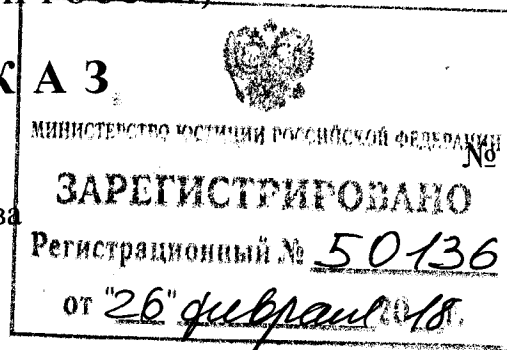 КАЗ
МИНИСТЕРСТВО ЮСТИЦИИ РОССИЙСКОЙ ФЕДЕРАЦИИ
№
ЗАРЕГИСТРИРОВАНО
Регистрационный № 50136
от "26" февраля 2018.